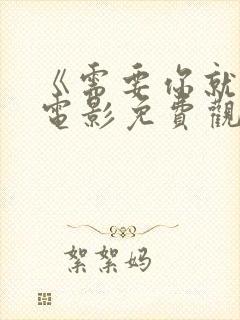 《需要你就
電影免費觀
絮絮妈